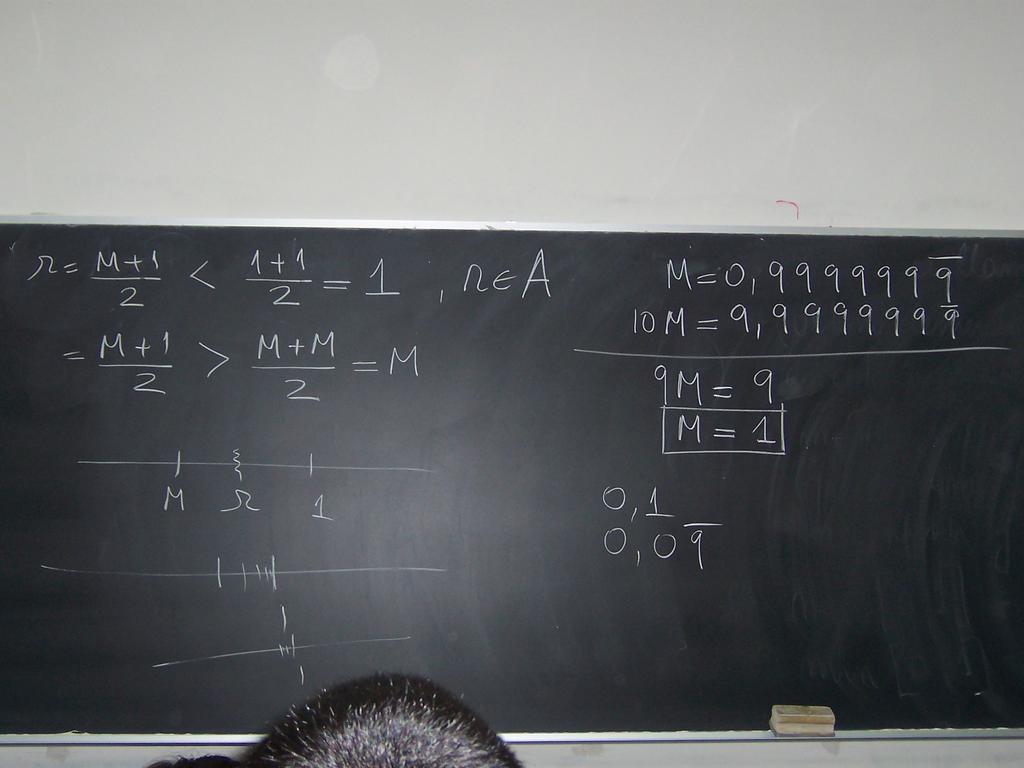 r = M+1/2 < 1+1/2 = 1 , r ∈ A
= M+1/2 > M+M/2 = M
M r 1
M = 0,9999999̅
10M = 9,9999999̅
9M = 9
M = 1
0,1
0,09̅